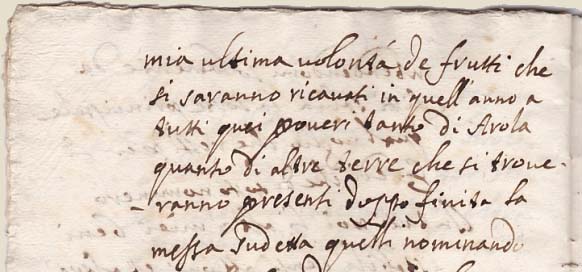 mia ultima volontá de frutti che
si saranno ricavati in quell'anno a
tutti quei poveri tanto di Arola
quanto di altre terre che si trove-
ranno presenti doppo finita la
messa sudetta quelli nominando